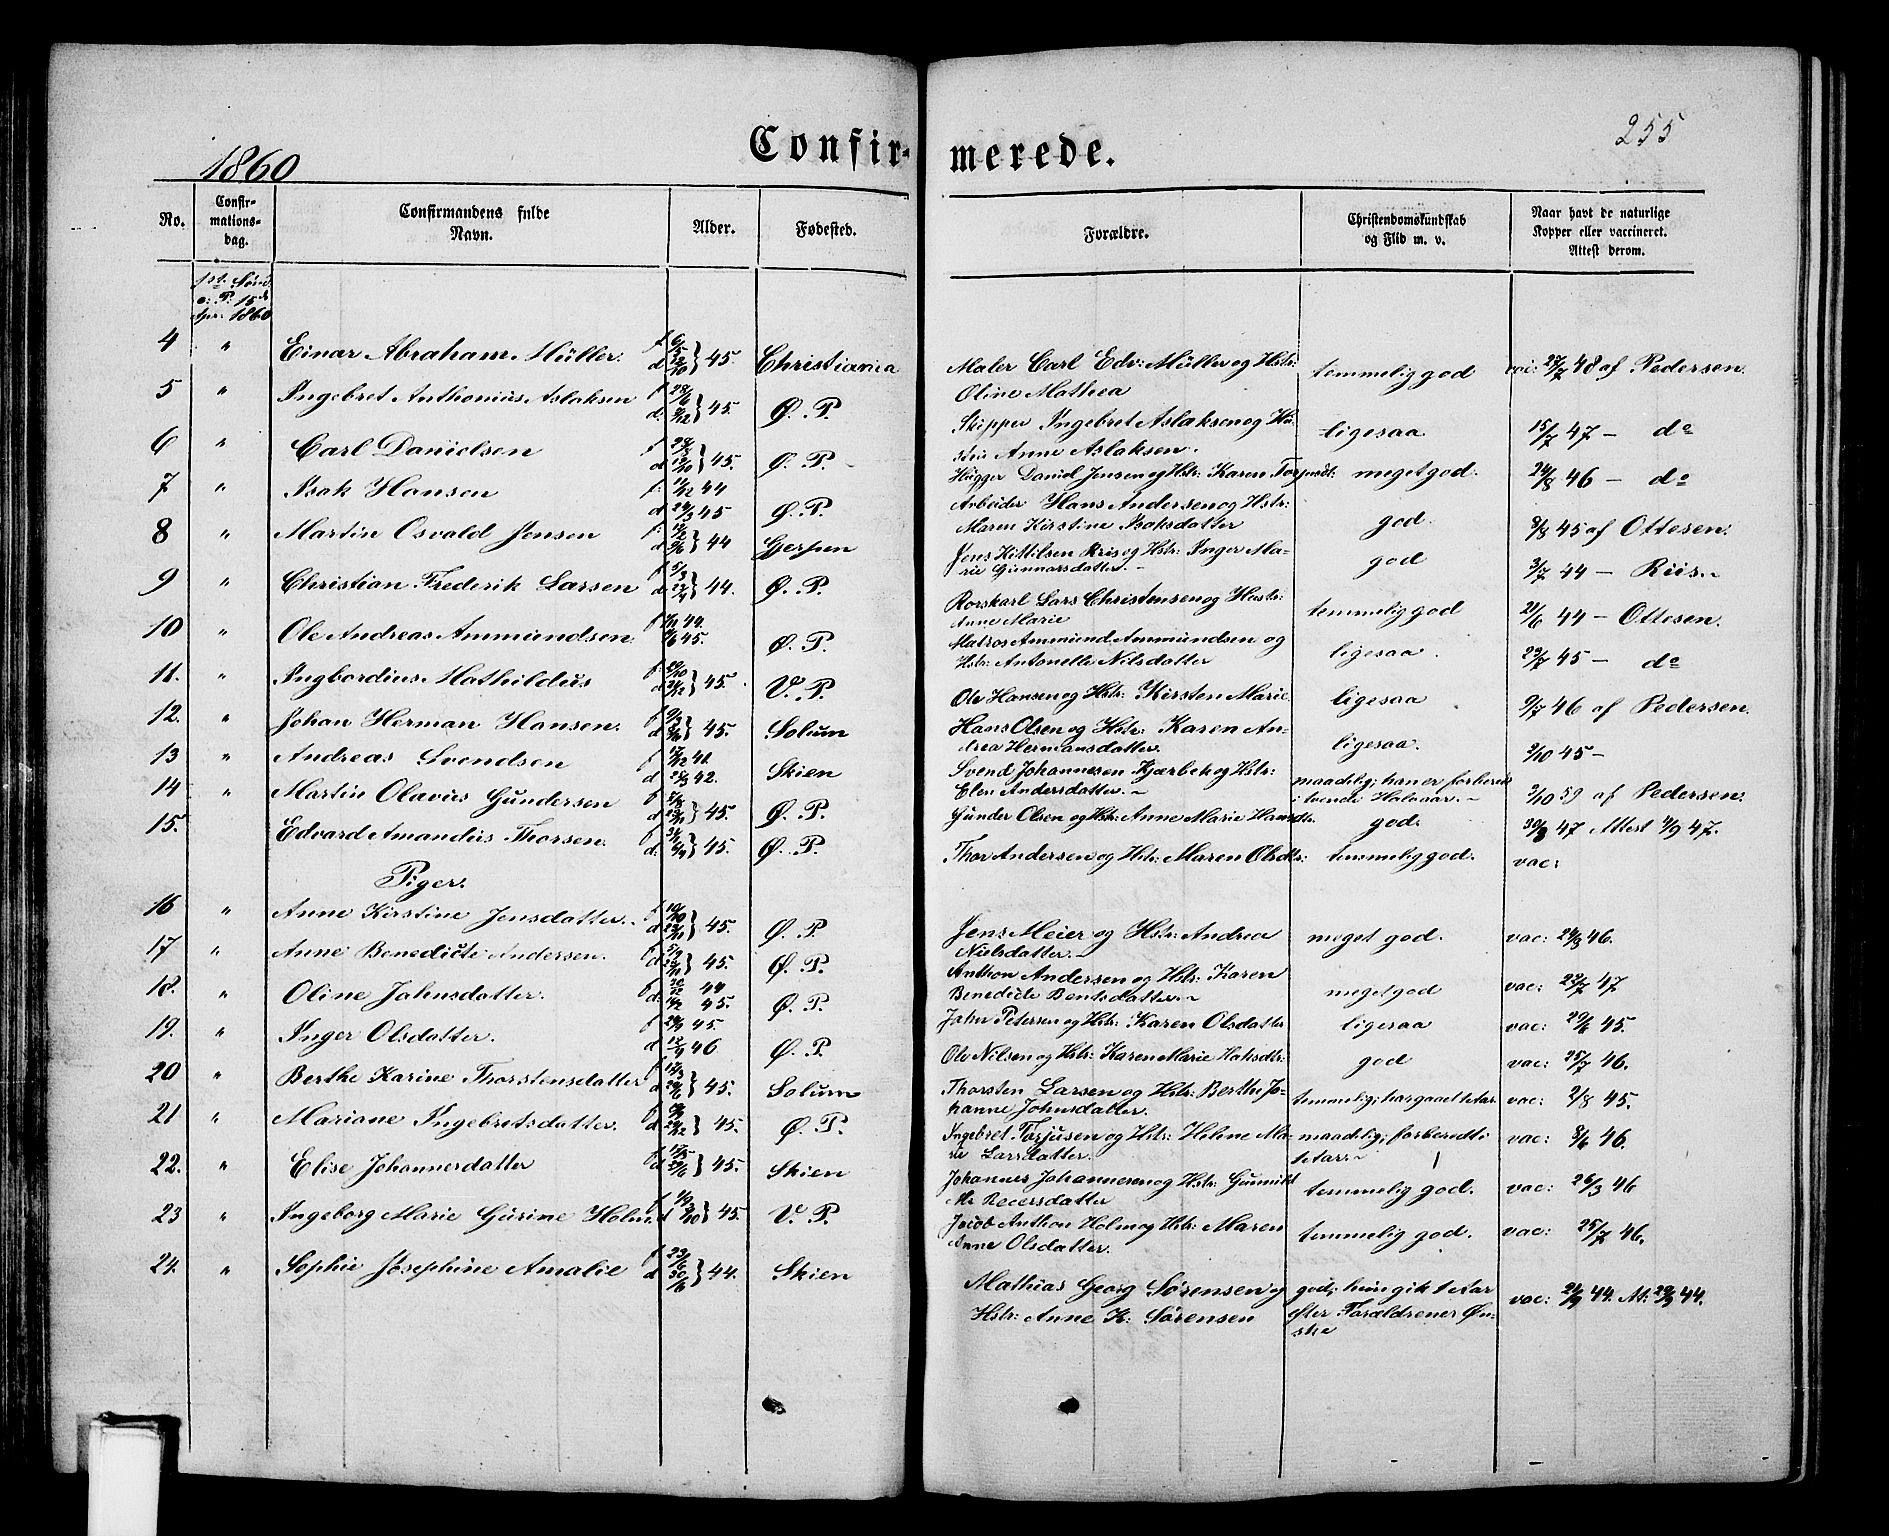 255
1860 Confir- merede.
No. Confir-mations-dag. Confirmandens fulde Navn. Alder. Fødested. Forældre. Christendomskundskab og Flid m. v. Naar havt de naturlige Kopper eller vaccineret. Attest derom.
1st Sønd.
e: P: 15d
Apr: 1860
4 " Einar Abraham Müller. 45. Christiania Maler Carl Edv: Müller og Hstr: temmelig god vac: 27/7 48 af Pedersen.
Oline Mathea
5 " Ingebret Anthonius Aslaksen 45. Ø. P. Skipper Ingebret Aslaksen og Hu- ligesaa 15/7 47 — do
stru Anne Aslaksen.
6 " Carl Danielsen 45. Ø. P. Hugger Daniel Jensen og Hstr: Karen meget god. 24/8 46 — do
7 " Isak Hansen f: 11/12 44 d 24/3 45 Ø. P. Arbeider Hans Andersen og Hstr: god. 8/8 45 af Ottesen.
Maren Kirstine Isaksdatter
8 " Martin Osvald Jensen 44 Gjerpen Jens Kittilsen og Hstr: Inger Ma- god 3/7 44 — Riis.
rie Gunnarsdatter.
9 " Christian Frederik Larsen 44. Ø. P. Rorskarl Lars Christensen og Hustr: temmelig god 21/6 44 — Ottesen.
Anne Marie
10 " Ole Andreas Ammundsen. 44. 45. Ø. P. Matros Ammund Ammundsen og ligesaa. 29/7 45 — do
Hstr: Antonelle Nilsdatter
11. " Ingbordius Mathildus 45. V. P. Ole Hansen og Hstr: Kirsten Marie ligesaa 9/7 46 af Pedersen.
12. " Johan Herman Hansen. 45. Solum Hans Olsen og Hstr: Karen An- ligesaa. 2/10 45 —
drea Hermansdatter.
13 " Andreas Svendsen f 17/12 41. d 25/3 42. Skien Svend Johannesen Kjærbek og Hstr: maadelig; han er forberedt
Elen Andersdatter. i tvende Halvaar. 3/10 59 af Pedersen.
14 " Martin Olavus Gundersen 45. Ø. P. Gunder Olsen og Hstr: Anne Marie Hansdtr. god. 30/8 47 Attest 4/9 47.
15. Edvard Amandus Thorsen. 45. Ø. P. Thor Andersen og Hstr: Maren Olsdtr: temmelig god. vac:
Piger.
16 " Anne Kirstine Jensdatter. 45. Ø. P. Jens Meier og Hstr: Andrea meget god. vac: 24/8 46.
Nielsdatter.
17 " Anne Benedicte Andersen. 45. Ø. P. Anthon Andersen og Hstr: Karen meget god vac: 22/7 47
Benedicte Bentsdatter.
18. " Oline Jahnsdatter. 44 45. Ø. P. Jahn Petersen og Hstr: Karen Olsdatter ligesaa vac: 29/6 45.
19. " Inger Olsdatter. 45 46 Ø. P. Ole Nilsen og Hstr: Karen Marie god vac: 25/7 46.
20 " Berthe Karine Thorstensdatter 45. Solum Thorsten Larsen og Hstr: Berthe Jo- temmelig; har gaaet 1 Aar. vac: 2/8 45.
hanne Johnsdatter.
21 " Mariane Ingebretsdatter. 45. Ø. P. Ingebret Torjusen og Hstr: Helene Ma- maadelig; forberedt i vac: 8/6 46.
rie Larsdatter. 1 Aar.
22. " Elise Johannesdatter 45. Skien Johannes Johannesen og Hstr: temmelig god. vac: 26/3 46
23 " Ingeborg Marie Gurine Holm. 45. V. P. Jacob Anthon Holm og Hstr: Maren temmelig god. vac: 25/7 46.
Anne Olsdatter.
24. " Sophie Josephine Amalie f 23/6 d 30/6 44. Skien Mathias Georg Sørensen og god; hun gik 1 Aar vac: 21/9 44. At: 29/9 44.
Hstr: Anne K: Sørensen efter Forældrenes Øn-
ske